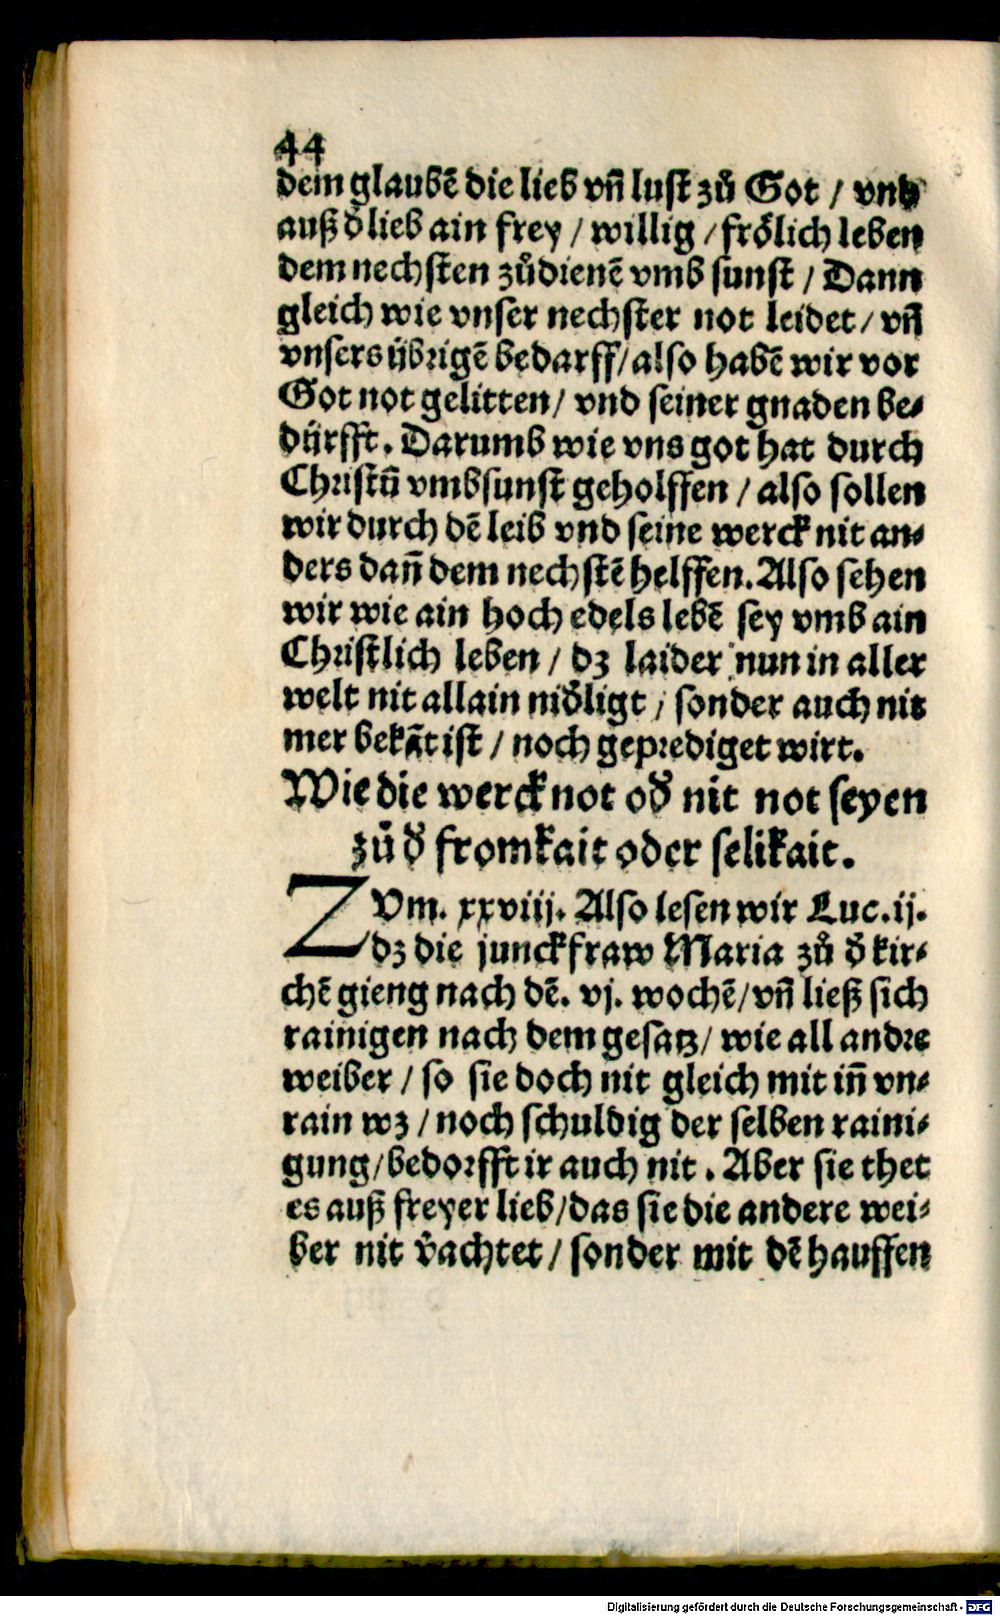 44
dem glaubē die lieb vñ lust zů Got / vnd
auß d̕ lieb ain frey / willig / frölich leben
dem nechsten zůdienē vmb sunst / Dann
gleich wie vnser nechster not leidet / vñ
vnsers übrigē bedarff / also habē wir vor
Got not gelitten / vnd seiner gnaden be⸗
dürfft. Darumb wie vns got hat durch
Christū vmbsunst geholffen / also sollen
wir durch dē leib vnd seine werck nit an⸗
ders dañ dem nechstē helffen. Also sehen
wir wie ain hoch edels lebē sey vmb ain
Christlich leben / dz laider nun in aller
welt nit allain nid̕ligt / sonder auch nit
mer bekāt ist / noch geprediget wirt.
Wie die werck not od̕ nit not seyen
zů d̕ fromkait oder selikait.
ZVm. xxviij. Also lesen wir Luc. ij.
dz die junckfraw Maria zů d̕ kir⸗
chē gieng nach dē. vj. wochē / vñ ließ sich
rainigen nach dem gesatz / wie all andre
weiber / so sie doch nit gleich mit iñ vn⸗
rain wz / noch schuldig der selben raini⸗
gung / bedorfft ir auch nit. Aber sie thet
es auß freyer lieb / das sie die andere wei⸗
ber nit v̕achtet / sonder mit dē hauffen
Digitalisierung gefördert durch die Deutsche Forschungsgemeinschaft - DFG